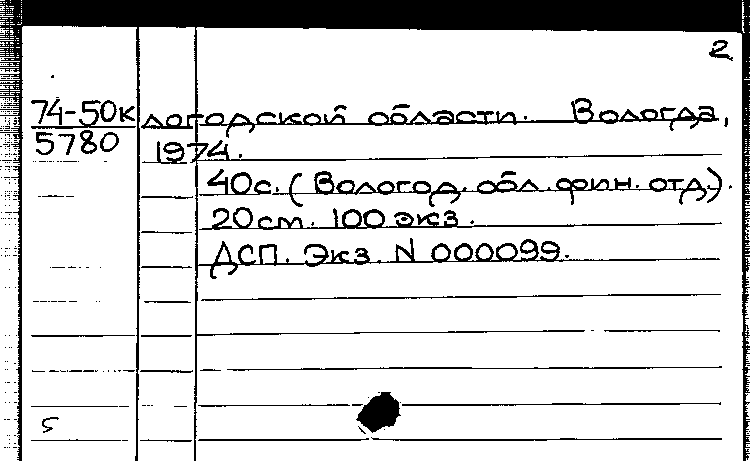 2
74-50к логодской области. Вологда,
5780 1974.
40с. (Вологод. обл. фин. отд.).
20см. 100 экз.
ДСП. Экз. N 000099.
5